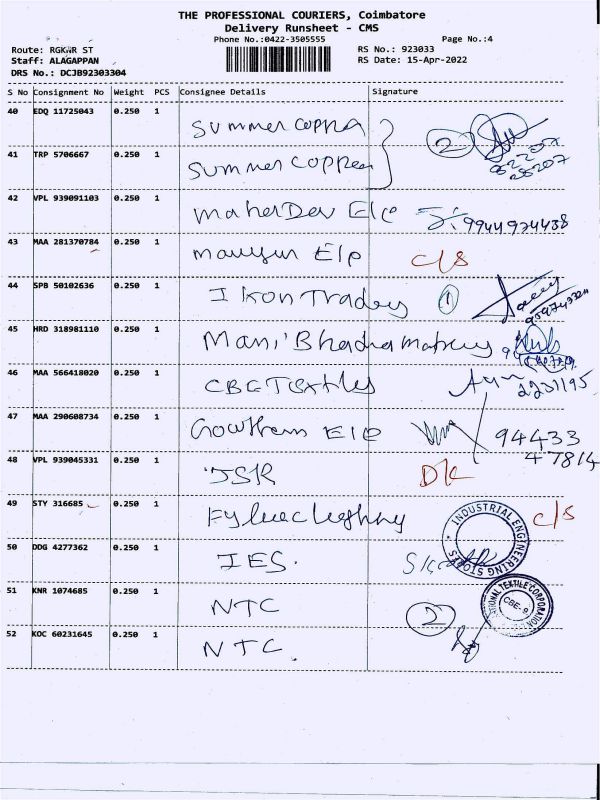 THE PROFESSIONAL COURIERS, Coimbatore
Delivery Runsheet - CMS
Phone No.:0422-3505555 Page No.:4
Route: RGKWR ST RS No.: 923033
Staff: ALAGAPPAN RS Date: 15-Apr-2022
DRS No.: DCJB92303304
S No Consignment No Weight PCS Consignee Details Signature
40 EDQ 11725043 0.250 1 Summer Coppra 2
41 TRP 5706667 0.250 1 Summer
42 VPL 939091103 0.250 1 E/e 9944924438
43 MAA 281370784 0.250 1 c/s
44 SPB 50102636 0.250 1 I Kon Tradey 1
45 HRD 318981110 0.250 1 Mani Bhadra
46 MAA 566418020 0.250 1 CBE Textiles 2231195
47 MAA 290608734 0.250 1 Gowtham E/e 94433
47814
48 VPL 939045331 0.250 1 JSR D/L
49 STY 316685 0.250 1 c/s
INDUSTRIAL ENGINEERING STORES
50 DDG 4277362 0.250 1 IES.
51 KNR 1074685 0.250 1 NTC 2
NATIONAL TEXTILE CORPORATION CBE-9
52 KOC 60231645 0.250 1 NTC